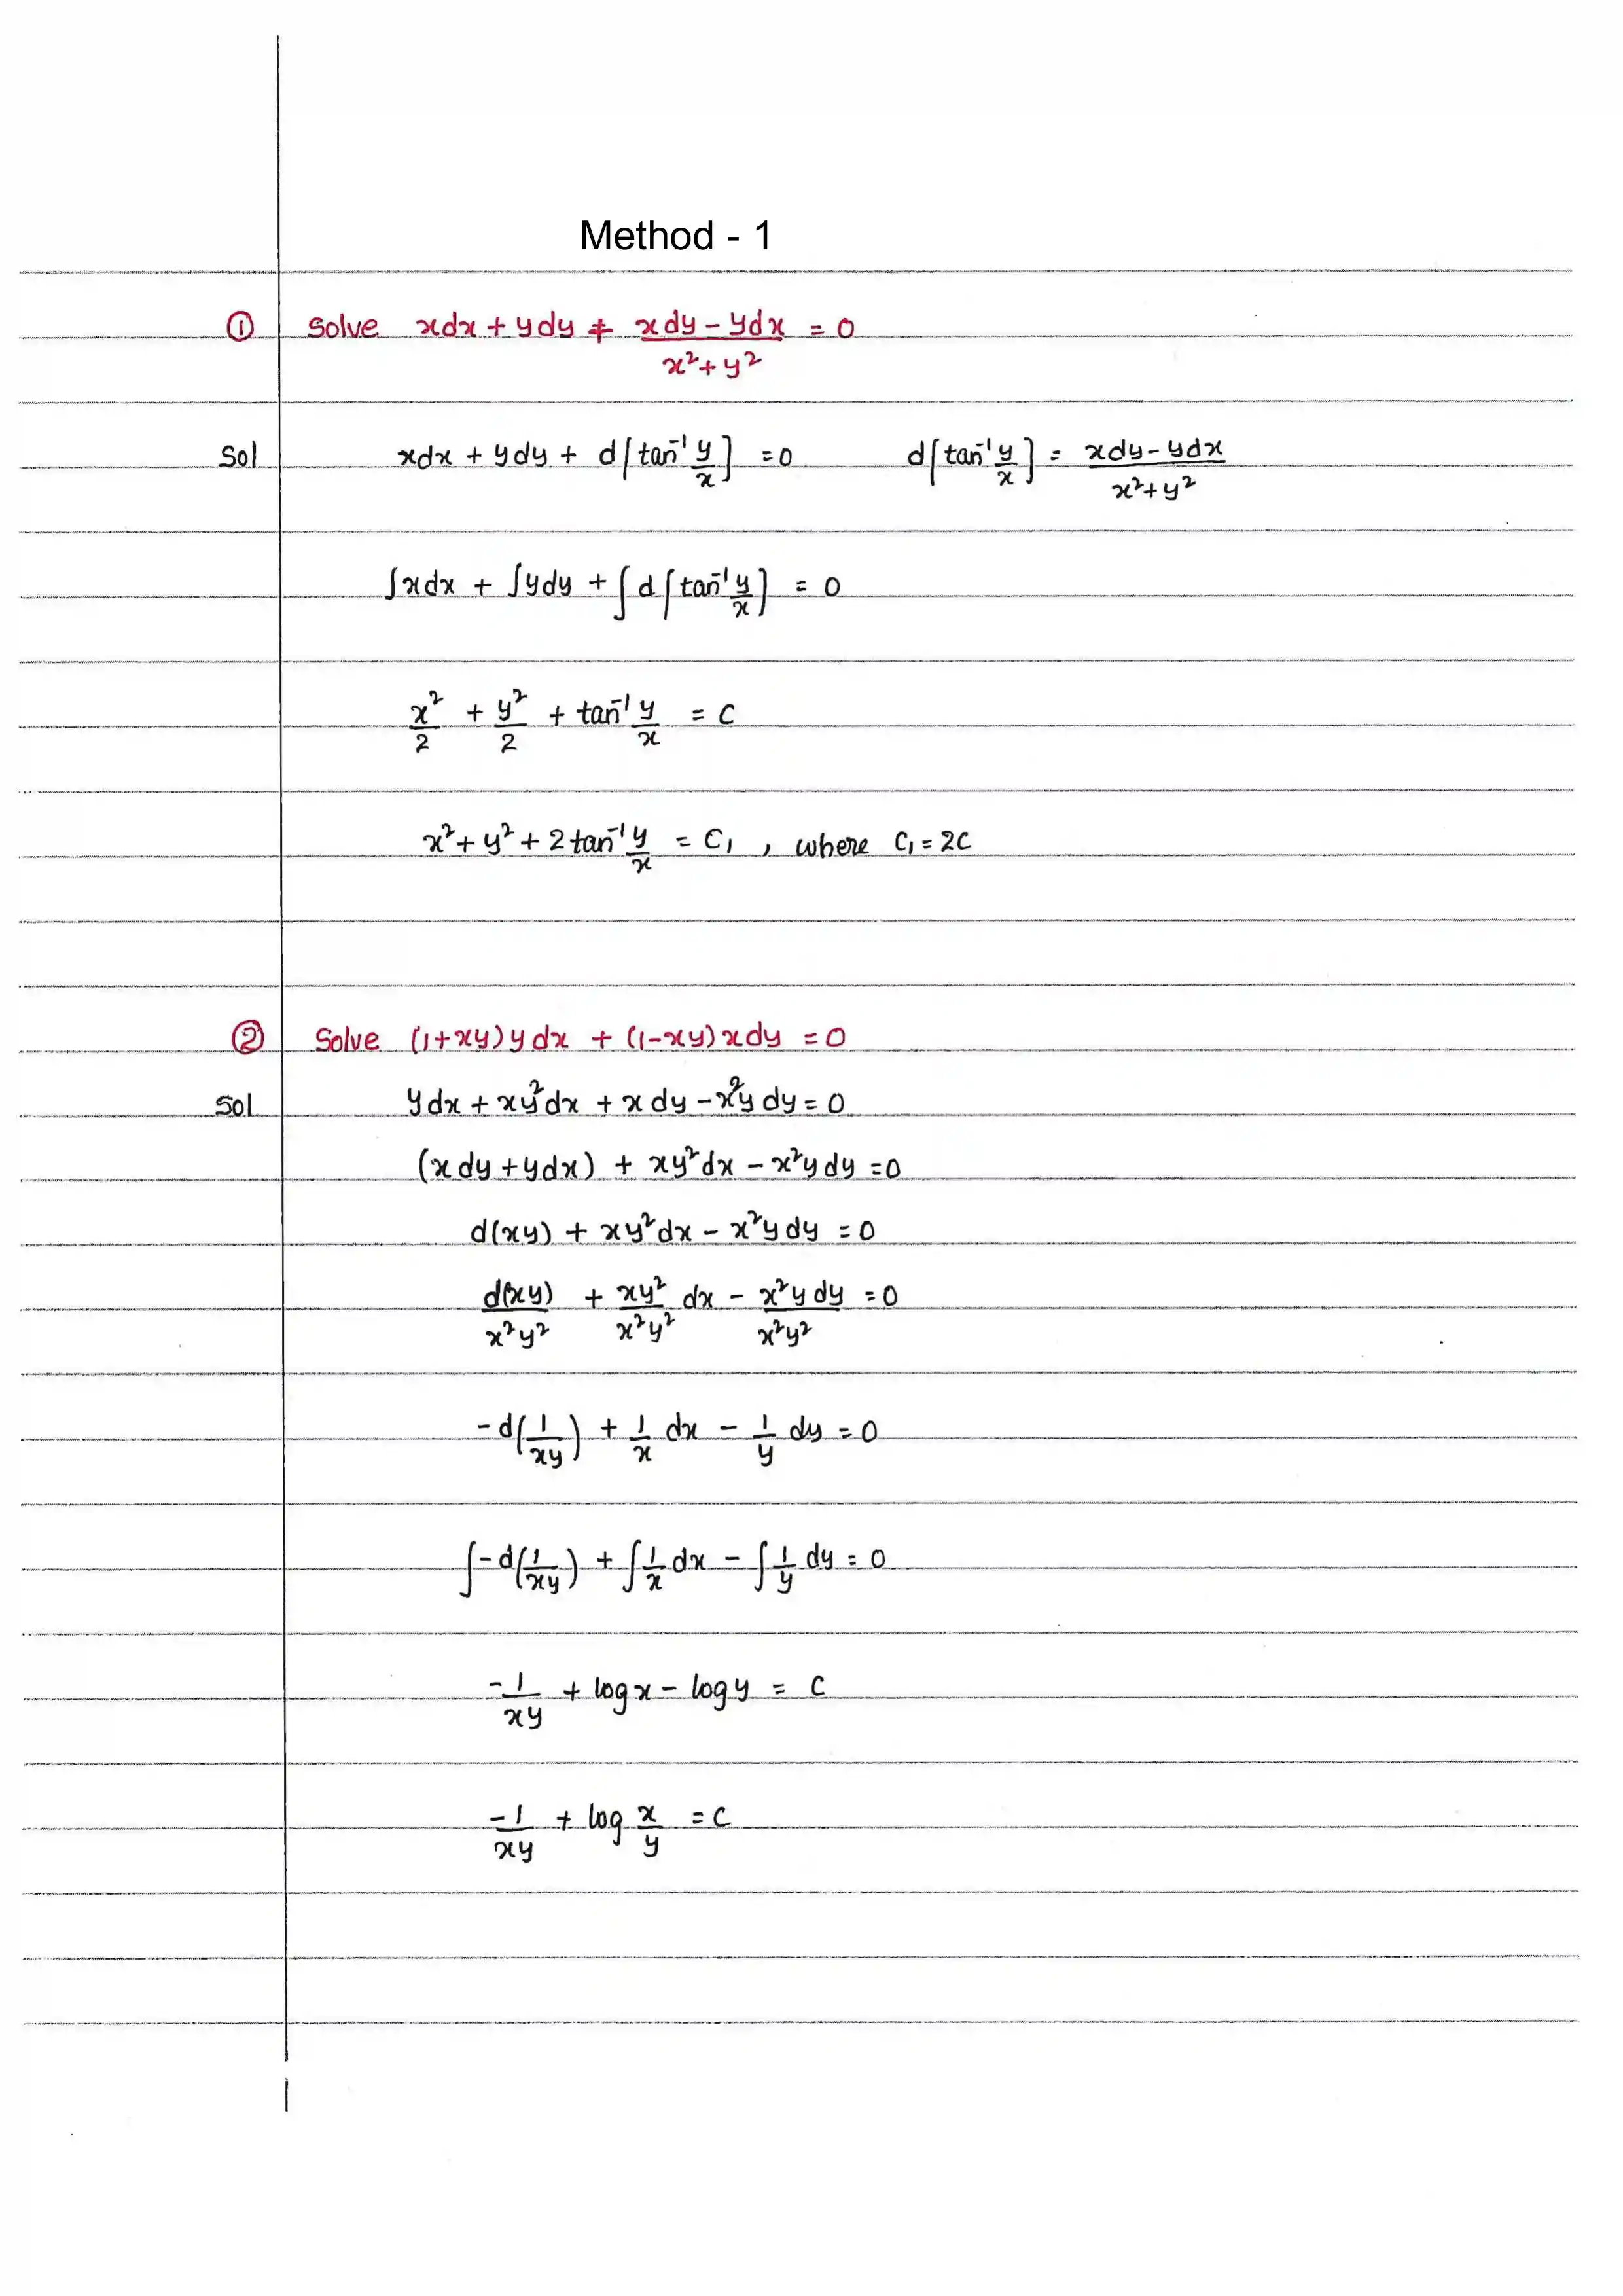 Method - 1
① Solve xdx + ydy + (xdy - ydx)/(x²+y²) = 0
Sol xdx + ydy + d[tan⁻¹ y/x] = 0 d[tan⁻¹ y/x] = (xdy - ydx)/(x²+y²)
∫xdx + ∫ydy + ∫d[tan⁻¹ y/x] = 0
x²/2 + y²/2 + tan⁻¹ y/x = C
x² + y² + 2tan⁻¹ y/x = C₁ , where C₁ = 2C
② Solve (1+xy)ydx + (1-xy)xdy = 0
Sol ydx + xy²dx + xdy - x²ydy = 0
(xdy + ydx) + xy²dx - x²ydy = 0
d(xy) + xy²dx - x²ydy = 0
d(xy)/x²y² + xy²/x²y² dx - x²ydy/x²y² = 0
-d(1/xy) + 1/x dx - 1/y dy = 0
∫-d(1/xy) + ∫1/x dx - ∫1/y dy = 0
-1/xy + logx - logy = C
-1/xy + log x/y = C